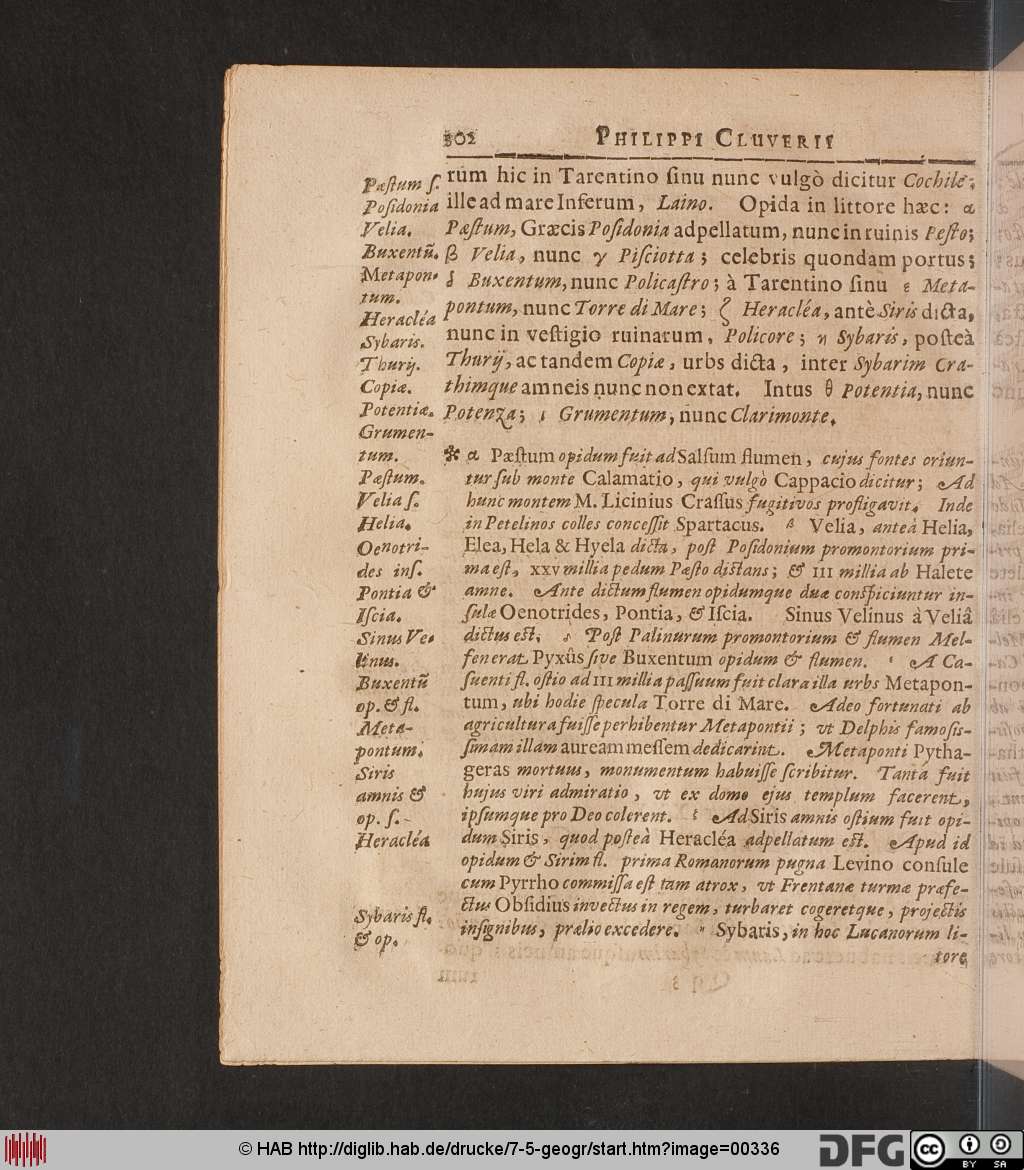 302 PHILIPPI CLUVERII
rum hic in Tarentino ſinu nunc vulgò dicitur Cochile;
ille ad mare Inferum, Laino. Opida in littore hæc: α
Pæſtum, Græcis Poſidonia adpellatum, nunc in ruinis Peſto;
β Velia, nunc γ Piſciotta; celebris quondam portus;
δ Buxentum, nunc Policaſtro; à Tarentino ſinu ε Meta-
pontum, nunc Torre di Mare; ζ Heracléa, antè Siris dicta,
nunc in veſtigio ruinarum, Policore; η Sybaris, poſteà
Thurij, ac tandem Copiæ, urbs dicta, inter Sybarim Cra-
thimque amneis nunc non extat. Intus θ Potentia, nunc
Potenza; ι Grumentum, nunc Clarimonte.
✻ α Pæſtum opidum fuit ad Salſum flumen, cujus fontes oriun-
tur ſub monte Calamatio, qui vulgò Cappacio dicitur; Ad
hunc montem M. Licinius Craſſus fugitivos profligavit. Inde
in Petelinos colles conceſſit Spartacus. β Velia, anteà Helia,
Elea, Hela & Hyela dicta, poſt Poſidonium promontorium pri-
ma eſt, XXV millia pedum Pæſto diſtans; & III millia ab Halete
amne. Ante dictum flumen opidumque duæ conſpiciuntur in-
ſulæ Oenotrides, Pontia, & Iſcia. Sinus Velinus à Veliâ
dictus eſt. δ Poſt Palinurum promontorium & flumen Mel-
fenerat Pyxûs ſive Buxentum opidum & flumen. ε A Ca-
ſuenti fl. oſtio ad III millia paſſuum fuit clara illa urbs Metapon-
tum, ubi hodie ſpecula Torre di Mare. Adeo fortunati ab
agricultura fuiſſe perhibentur Metapontii; vt Delphis famoſiſ-
ſimam illam auream meſſem dedicarint. Metaponti Pytha-
geras mortuus, monumentum habuiſſe ſcribitur. Tanta fuit
hujus viri admiratio, vt ex domo ejus templum facerent,
ipſumque pro Deo colerent. ζ Ad Siris amnis oſtium fuit opi-
dum Siris, quod poſteà Heracléa adpellatum eſt. Apud id
opidum & Sirim fl. prima Romanorum pugna Levino conſule
cum Pyrrho commiſſa eſt tam atrox, vt Frentanæ turmæ præfe-
ctus Obſidius invectus in regem, turbaret cogeretque, projectis
inſignibus, prælio excedere. η Sybaris, in hoc Lucanorum li-
tore
Pæſtum ſ.
Poſidonia
Velia.
Buxentũ.
Metapon-
tum.
Heracléa
Sybaris.
Thurij.
Copiæ.
Potentiæ.
Grumen-
tum.
Pæſtum.
Velia ſ.
Helia.
Oenotri-
des inſ.
Pontia &
Iſcia.
Sinus Ve-
linus.
Buxentũ
op. & fl.
Meta-
pontum.
Siris
amnis &
op. ſ.
Heracléa
Sybaris fl.
& op.
© HAB http://diglib.hab.de/drucke/7-5-geogr/start.htm?image=00336
DFG
cc BY SA